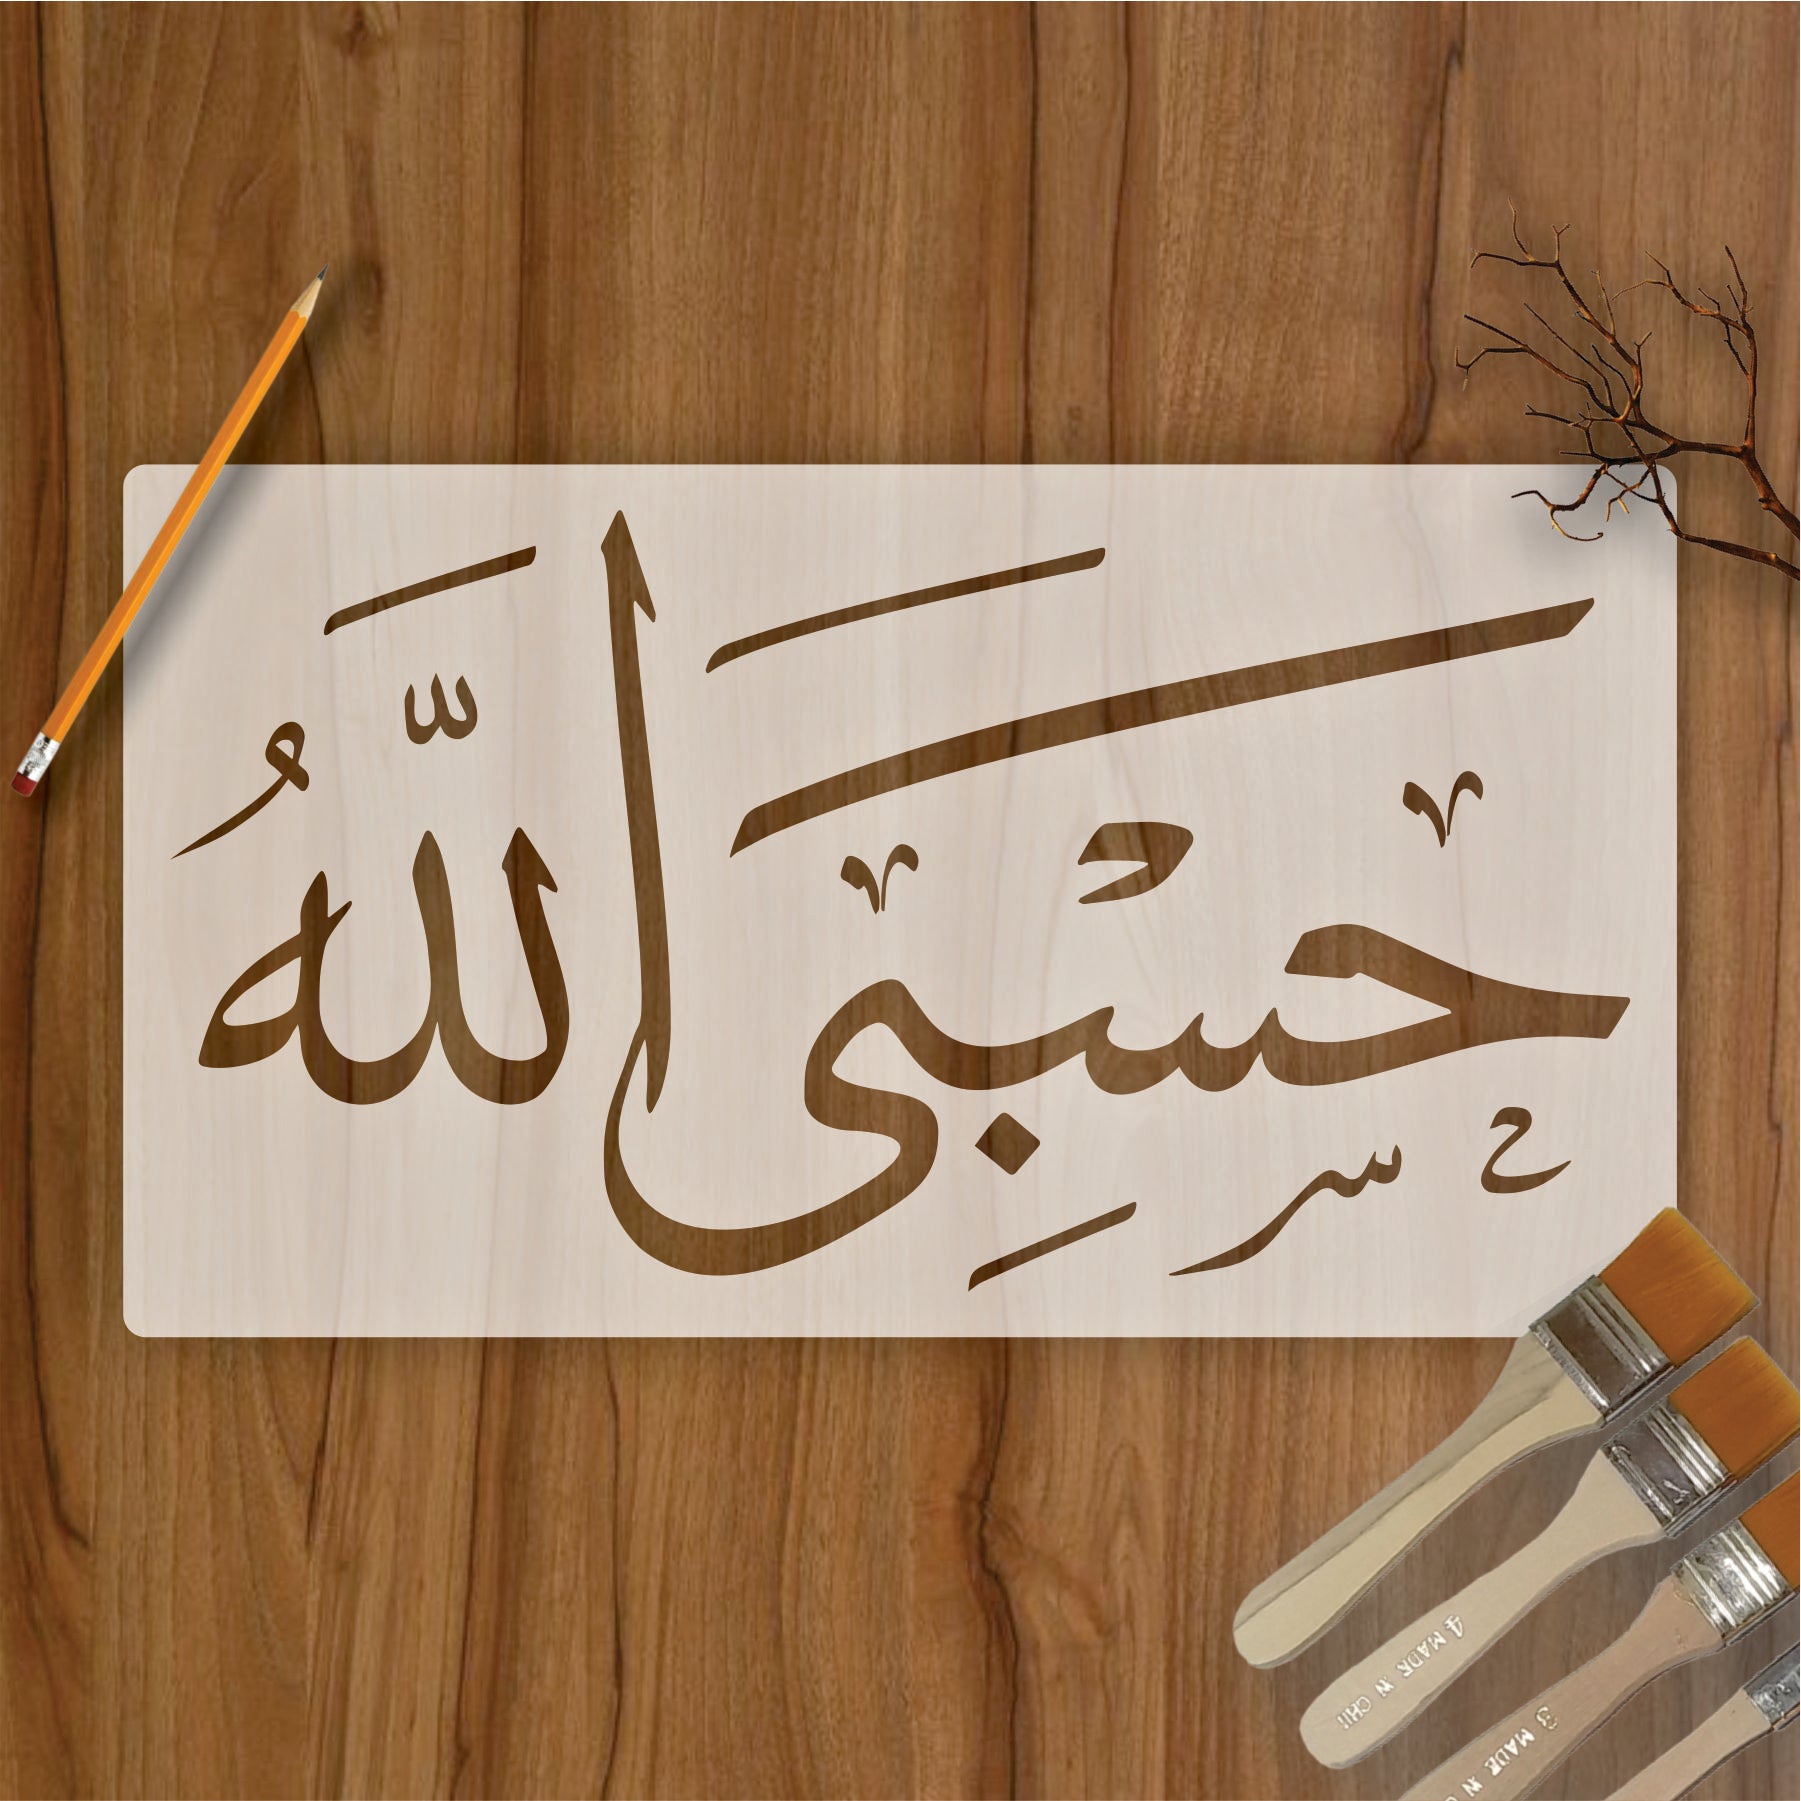 حَسْبِيَ اللّٰهُ
4 MADE IN CHI
3 MADE IN C